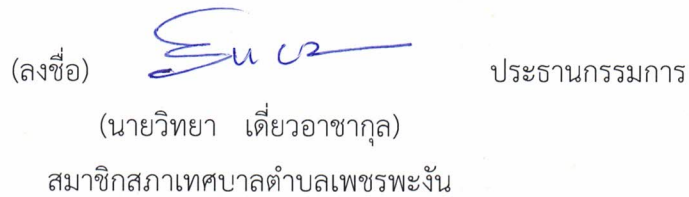 (ลงชื่อ) ประธานกรรมการ
(นายวิทยา เดี่ยวอาชากุล)
สมาชิกสภาเทศบาลตำบลเพชรพะงัน